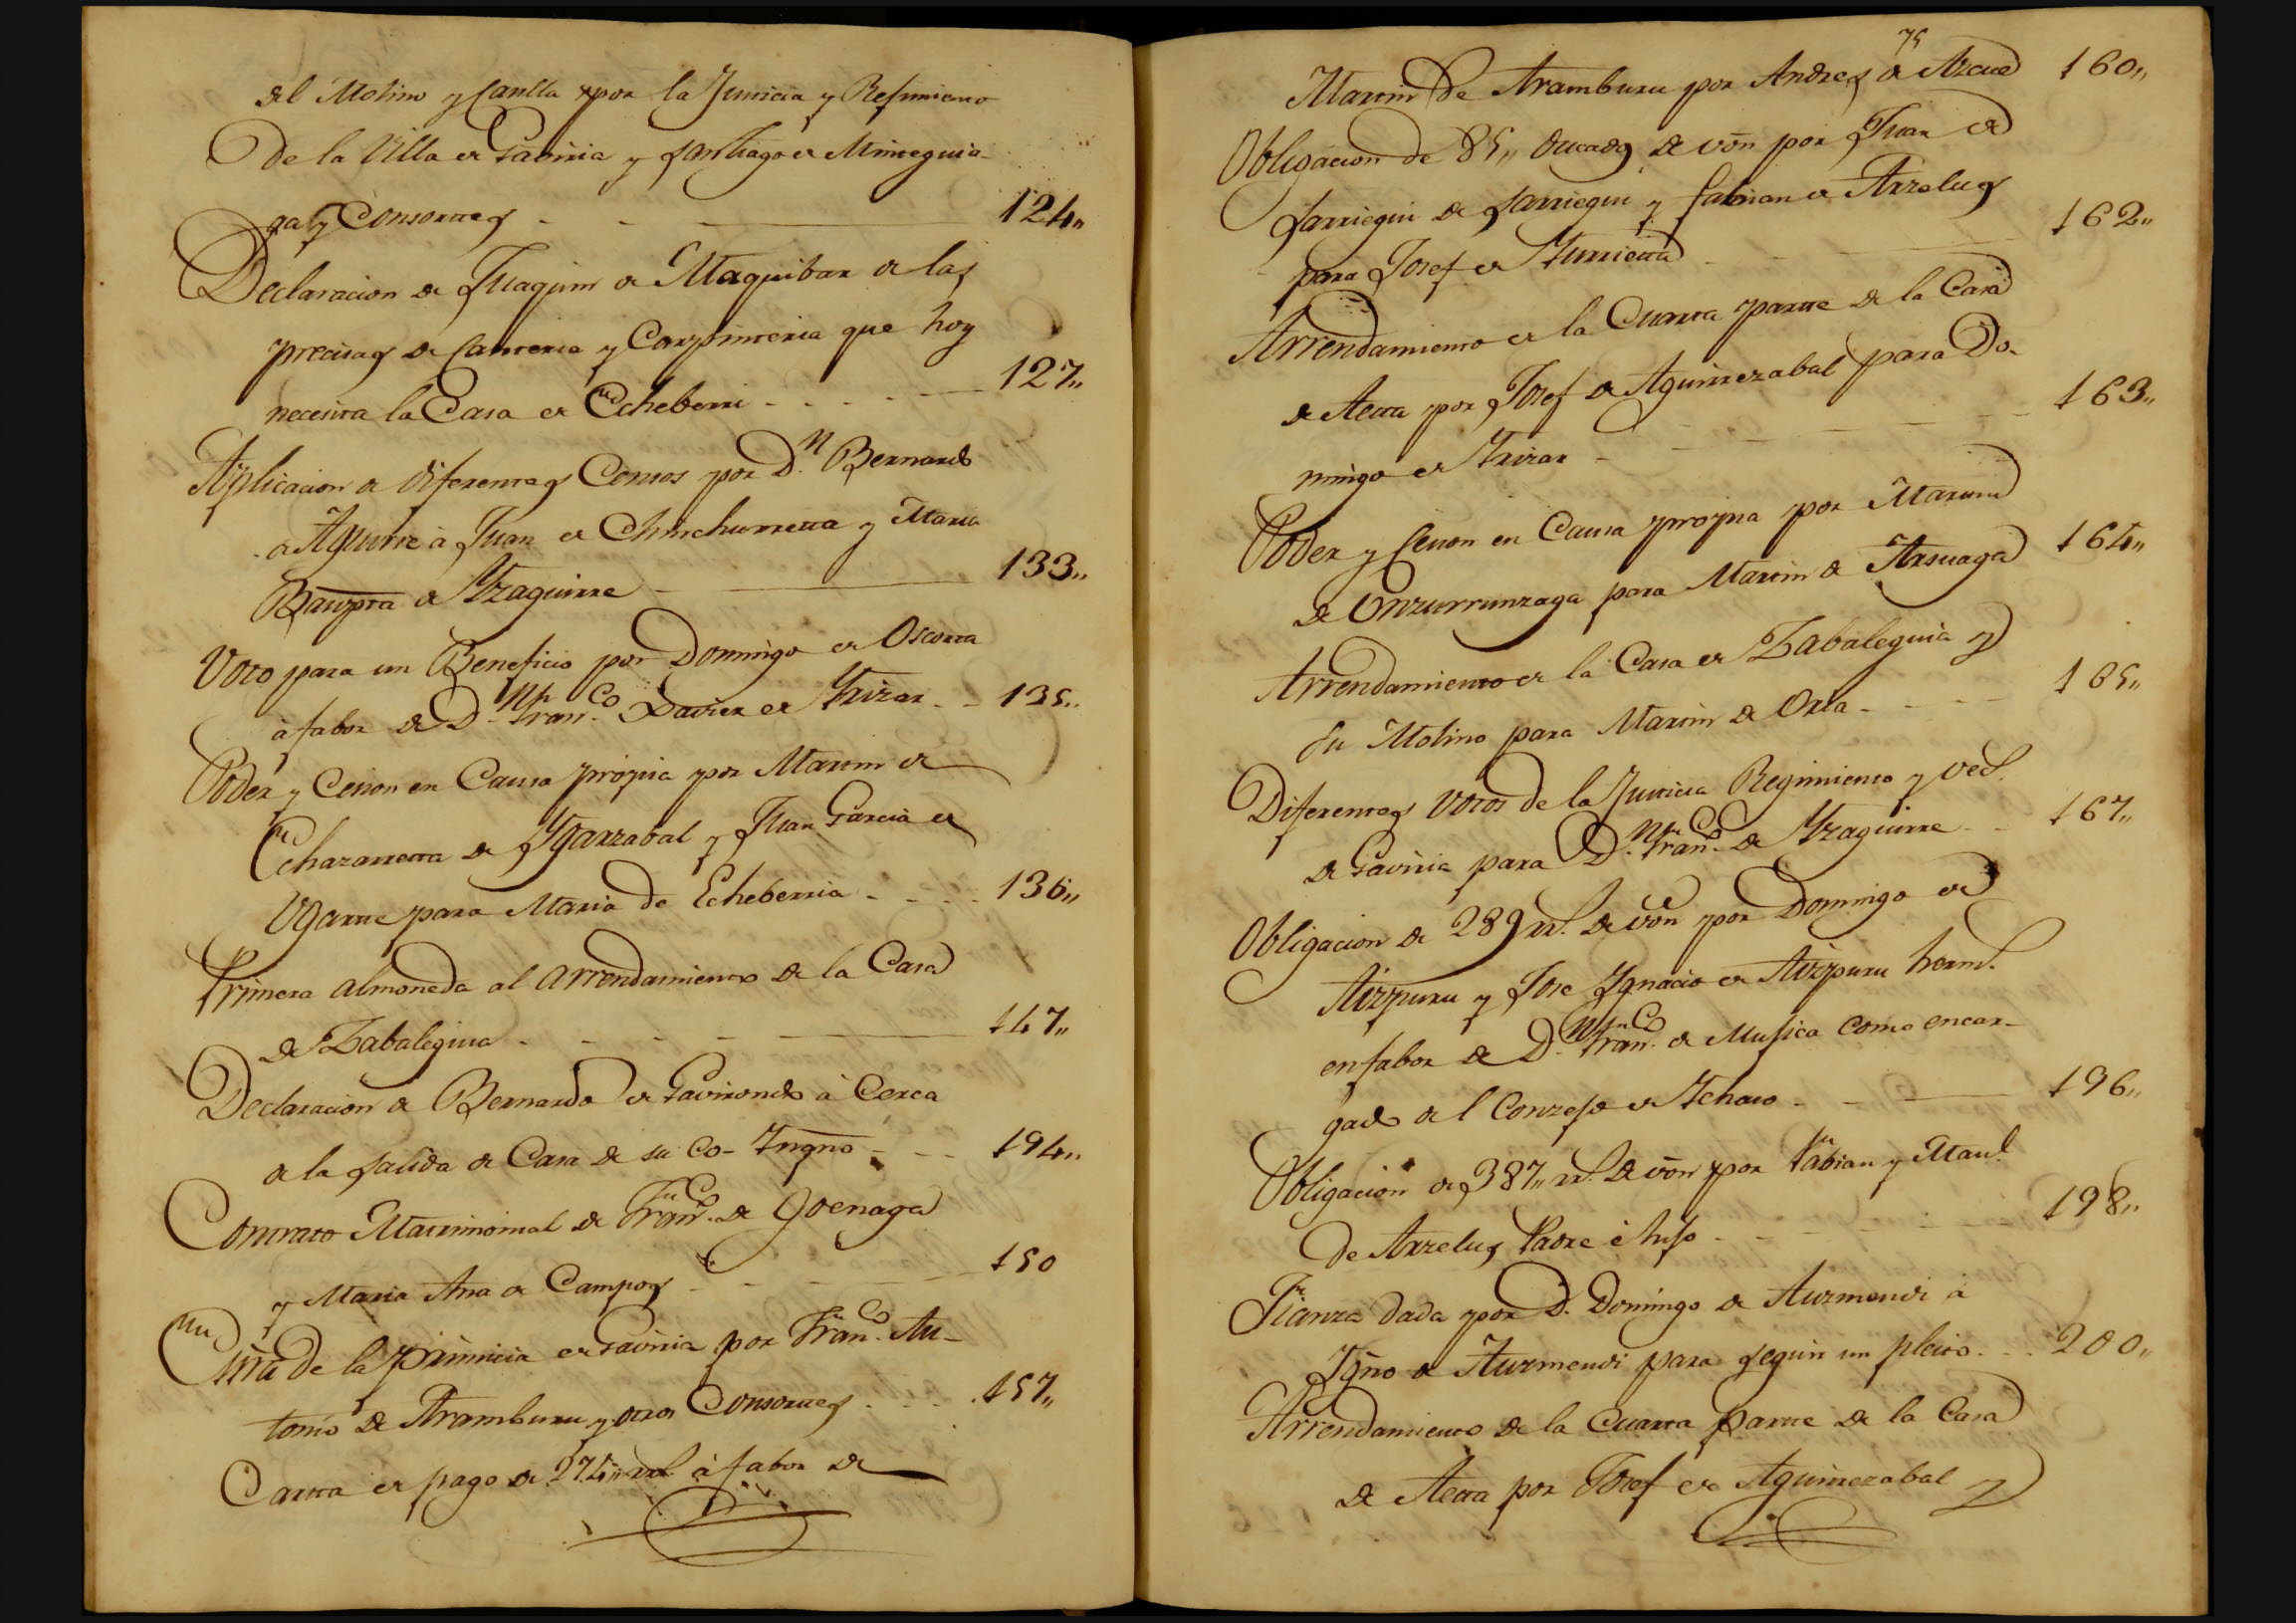 del Molino y Canlla por la Justicia y Refimiento
de la Villa de Gaviria y Santiago de Minteguia-
ga y Consortes - - 124,,
Declaracion de Juaquin de Maquibar de las
precisas de Canteria y Carpinteria que hoy
necesita la Casa de Echeberri - - - - 127,,
Aplicacion de diferentes Censos por D.n Bernardo
de Aguirre à Juan de Chinchurreta y Maria
Baupta de Yzaguirre - 133,,
Voto para un Beneficio por Domingo de Oscorta
à fabor de D.n Fran.co Xavier de Yrizar - - 135,,
Poder y Cesion en Causa propia por Martin de
Echazarreta de Ygarzabal y Juan Garcia de
Ugarte para Maria de Echeberria - - - 136,,
Primera almoneda al arrendamiento de la Casa
de Zabalegiua - - - - 147,,
Declaracion de Bernardo de Gavirondo à Cerca
de la salida de Casa de su Co-Ynqno - - - 194,,
Contrato Matrimonial de Fran.co de Goenaga
y Maria Ana de Campos - - 150
de la Primicia de Gaviria por Fran.co An-
tonio de Aramburu y otros Consortes - - - 157,,
Carta de pago de 274,, rr.l à fabor de
75
Martin de Aramburu por Andres de Azcue 160,,
Obligacion de 85,, ducados de von por Juan de
Sarriegui de Sarriegui y Fabian de Arzelus
para Josef de Yturrieta - - 162,,
Arrendamiento de la Cuarta parte de la Casa
de Aetta por Josef de Aguirrezabal para Do-
mingo de Yrizar - 163,,
Poder y Cesion en Causa propia por Martin
de Unzurrunzaga para Martin de Arsuaga 164,,
Arrendamiento de la Casa de Zabaleguia y
Su Molino para Martin de Oria - - - 165,,
Diferentes votos de la Justicia Regimiento y vec.s
de Gaviria para D.n Fran.co de Yzaguirre - - 167,,
Obligacion de 289 rr.s de von por Domingo de
Aizpuru y Jose Ygnacio de Aizpuru herm.s
en fabor de D.n Fran.co de Mufica como encar-
gado de l Conzefo de Ychaso - - 196,,
Obligacion de 387,, rr.s de von por Fabian y Man.l
de Arzelus Padre è hifo - - - - 198,,
Fianza dada por D. Domingo de Aurmendi à
Ygno de Aurmendi para seguir un pleito - - 200,,
Arrendamiento de la Cuarta parte de la Casa
de Aetta por Josef de Aguirrezabal y